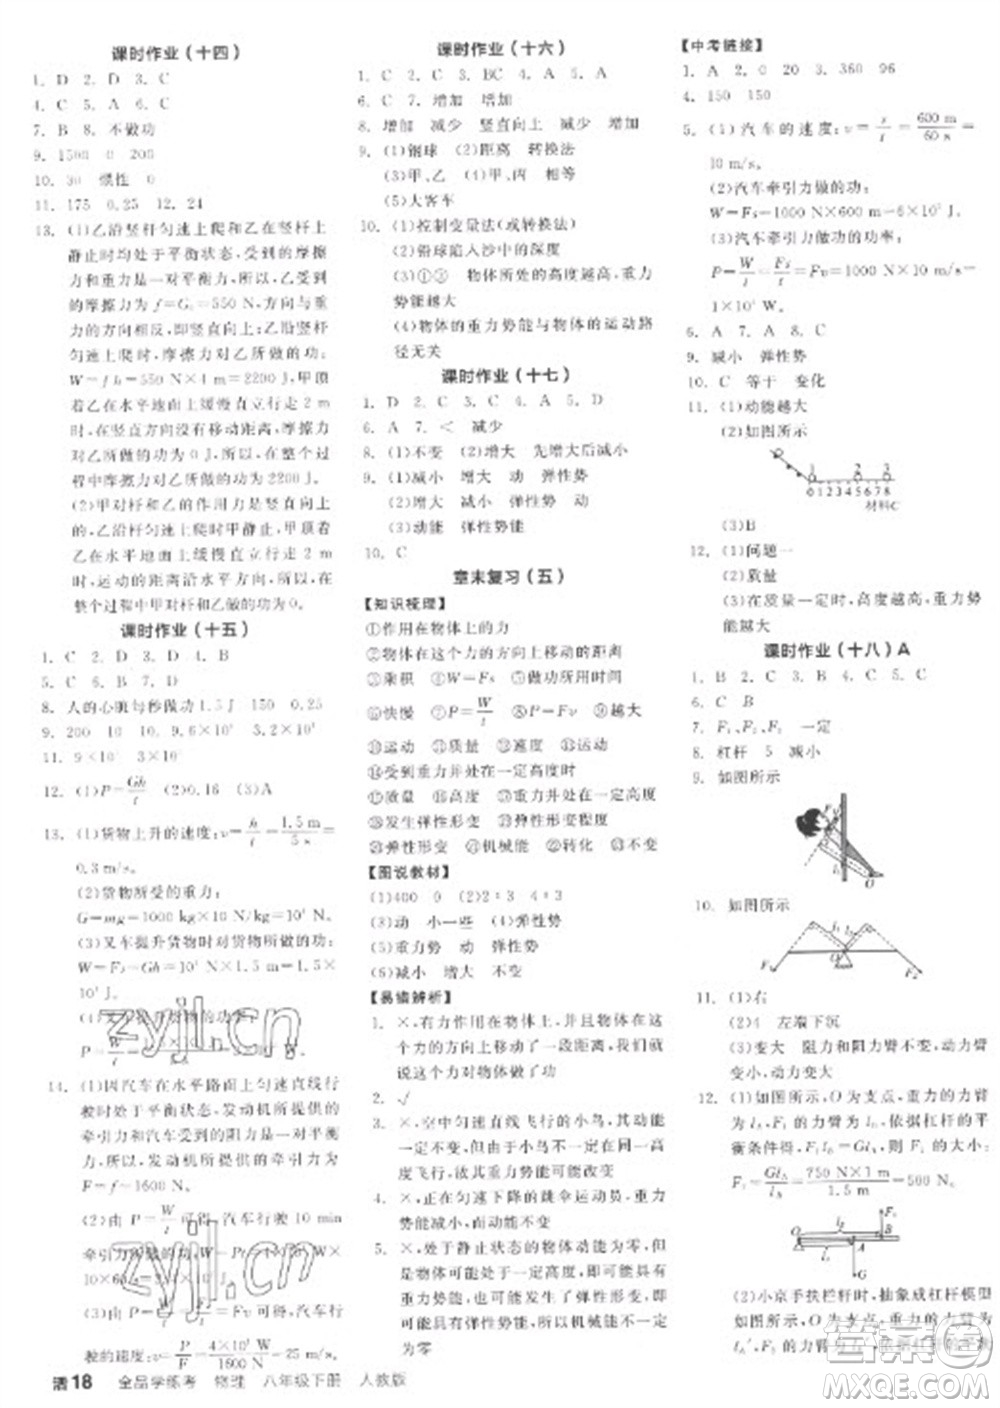 课时作业(十四)
1. D 2. D 3. C
4. C 5. A 6. D
7. B 8. 不做功
9. 1500 0 200
10. 30 惯性 0
11. 175 0.25 12. 24
13. (1)乙沿竖杆匀速上爬和乙在竖杆上
静止时均处于平衡状态,乙受到的摩擦
力和重力是一对平衡力,所以,乙受到
的摩擦力大小为 f=G乙=550 N,方向与重
力的方向相反,即竖直向上;乙沿竖杆
匀速上爬时,摩擦力对乙所做的功为
W=fh=550 N×4 m=2200 J;
甲和乙在水平地面上缓慢直向走 2 m
时,在竖直方向上没有移动距离,摩擦
力对乙所做的功为 0 J,所以,在整个过
程中摩擦力对乙所做的总功为2200 J。
(2)甲对杆和乙的作用力竖直向上,
乙沿杆匀速上爬时甲静止,甲顶着
杆在水平地面上缓慢直向走 2 m
时,运动的距离沿水平方向,所以在整
个过程中甲对杆和乙做的功为0。
课时作业(十五)
1. C 2. D 3. A 4. B
5. C 6. B 7. D
8. 人的心脏每秒做功1.5 J 150 0.25
9. 200 10 10. 9.6×10³
11. 9×10³ 3×10³
12. (1)P=Gh/t (2)0.16 (3)A
13. (1)货物上升的速度:v=h/t=1.5 m/5 s=
0.3 m/s。
(2)货物所受的重力:
G=mg=1000 kg×10 N/kg=1×10⁴ N。
(3)叉车提升货物时对货物所做的功:
W=Fs=Gh=1×10⁴ N×1.5 m=1.5×
10⁴ J。
14. (1)因汽车在水平路面上匀速直线行
驶时处于平衡状态,发动机所提供的
牵引力和汽车受到的阻力是一对平衡
力,所以发动机所提供的牵引力为
F=f=1600 N。
(2)由 P=W/t 可得,汽车行驶 10 min
(3)由 P=W/t=Fs/t=Fv 可得,汽车行
驶的速度:v=P/F=4×10⁴ W/1600 N=25 m/s。
课时作业(十六)
1. C 2. C 3. BC 4. A 5. A
6. C 7. 增加 增加
8. 增加 减少 竖直向上 减少 增加
9. (1)钢球 (2)距离 转换法
(3)甲、乙 (4)甲、丙 相等
(5)大客车
10. (1)控制变量法(或转换法)
(2)铅球陷入沙中的深度
(3)①③ 物体所处的高度越高,重力
势能越大
(4)物体的重力势能与物体的运动路
径无关
课时作业(十七)
1. D 2. C 3. C 4. B 5. D
6. A 7. < 减少
8. (1)不变 (2)增大 先增大后减小
9. (1)减小 增大 动 弹性势
(2)增大 减小 弹性势 动
(3)动能 弹性势能
10. C
章末复习(五)
【知识梳理】
①作用在物体上的力
②物体在这个力的方向上移动的距离
③乘积 ④W=Fs ⑤做功所用时间
⑥快慢 ⑦P=W/t ⑧P=Fv ⑨越大
⑩运动 ⑪质量 ⑫速度 ⑬运动
⑭受到重力并处在一定高度时
⑮质量 ⑯高度 ⑰重力 ⑱高
⑲发生弹性形变 ⑳弹性形变程度
㉑弹性形变 ㉒机械能 ㉓转化 ㉔不变
【图说教材】
(1)400 0 (2)2∶3 4∶3
(3)动 小一些 (4)弹性势
(5)重力势 动 弹性势
(6)减小 增大 不变
【易错辨析】
1. ×,有力作用在物体上,并且物体在这
个力的方向上移动了一段距离,我们
就说这个力对物体做了功
2. √
3. ×,空中匀速直线飞行的小鸟,动能
一定不变,但由于小鸟不一定在同一
高度飞行,其重力势能可能改变
4. ×,正在匀速下降的跳伞运动员,重力
势能减小,动能不变
5. ×,处于静止状态的物体动能为零,但
是物体可能处于一定高度,也可能发
生弹性形变,其势能不一定
为零,所以机械能不一定
为零
【中考链接】
1. A 2. 0 20 3. 360 96
4. 150 150
5. (1)汽车的速度:v=s/t=600 m/60 s=
10 m/s。
(2)汽车牵引力做的功:
W=Fs=1000 N×600 m=6×10⁵ J。
(3)汽车牵引力做功的功率:
P=W/t=Fs/t=Fv=1000 N×10 m/s=
1×10⁴ W。
6. A 7. A 8. C
9. 减小 弹性势
10. C 等于 变化
11. (1)动能越大
(2)如图所示
0 1 2 3 4 5 6 7 8
材料C
(3)B
12. (1)问题一
(2)质量
(3)在质量一定时,高度越高,重力势
能越大
课时作业(十八)A
1. B 2. C 3. D 4. C 5. A
6. C B
7. F₁ F₁、F₂ F₂ 一定
8. 杠杆 5 减小
9. 如图所示
O
10. 如图所示
F₁ l₁ l₂ O F₂
11. (1)右
(2)4 左端下沉
(3)变大 阻力和阻力臂不变,动力臂
变小,动力变大
12. (1)如图所示,以O为支点,重力的力臂
为 lA,F₁的力臂为 lB,依据杠杆的平
衡条件得,F₁lB=GlA,则 F₁的大小:
F₁=GlA/lB=750 N×1 m/1.5 m=500 N。
O A B F₁ G l₁ l₂
(2)小京手扶栏杆时,抽象成杠杆模型
答案圈
MXQE.COM
zyjl.cn
zyjl.cn
活18 全品学练考 物理 八年级下册 人教版